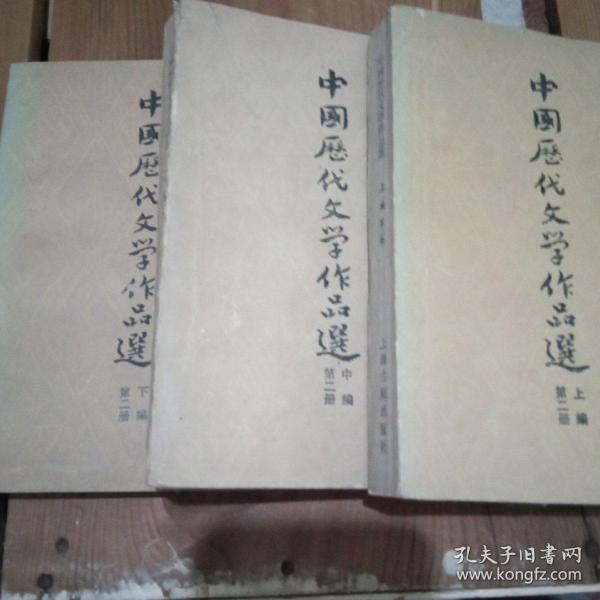 中國歷代文学作品選
下編
第二册
中國歷代文学作品選
中編
第二册
中國歷代文学作品選
上編
第二册
上海古籍出版社
孔夫子旧书网
www.kongfz.com